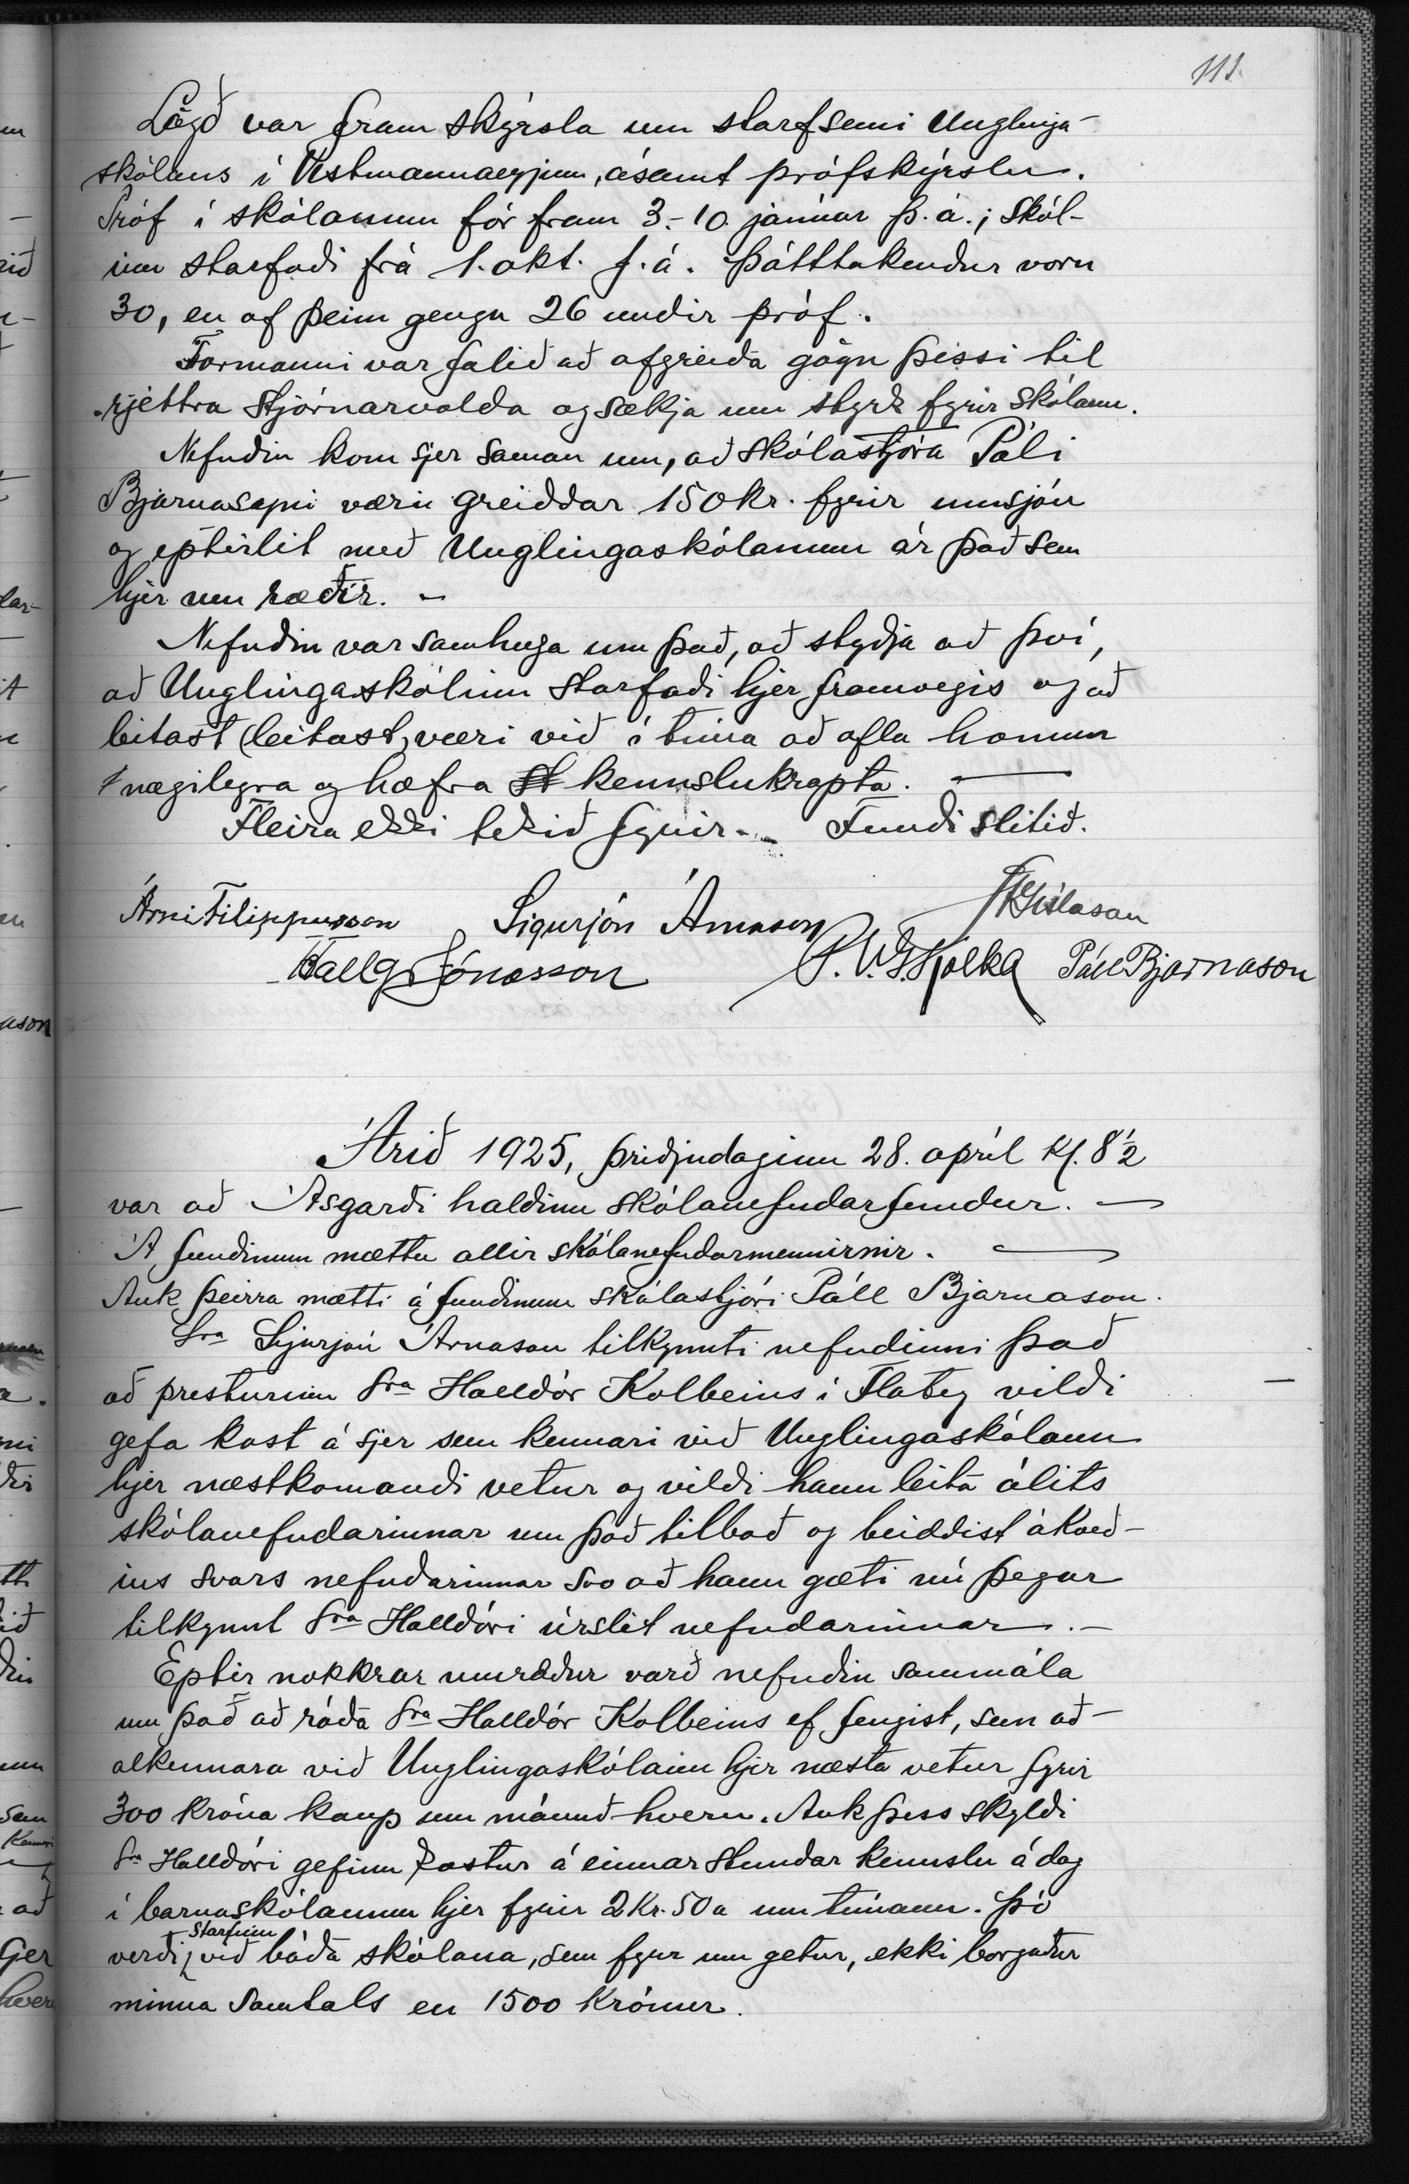 111.
Lögð var fram skýrsla um starfsemi Unglinga-
skólans í Vestmannaeyjum, ásamt prófskýrslu.
Próf í skólanum fór fram 3.-10. janúar þ.á.; skól-
inn starfaði frá 1. okt. f.á. Þátttakendur voru
30, en af þeim gengu 26 undir próf.
Formanni var falið að afgreiða gögn þessi til
rjettra stjórnarvalda og sækja um styrk fyrir skólann.
Nefndin kom sjer saman um, að skólastjóra Páli
Bjarnasyni væru greiddar 150 kr. fyrir umsjón
og eptirlit með Unglingaskólanum ár það sem
hjer um ræðir. -
Nefndin var samhuga um það, að styðja að því,
að Unglingaskólinn starfaði hjer framvegis og að
leitast (leitast) væri við í tíma að afla honum
nægilegra og hæfra st kennslukrapta. —
Fleira ekki tekið fyrir. - Fundi slitið.
Árni Filippusson Sigurjón Árnason Gíslason
Hallgr Jónasson P. V. G. Kolka Páll Bjarnason
Árið 1925, þriðjudaginn 28. apríl kl. 8½
var að Ásgarði haldinn skólanefndarfundur. —
Á fundinum mættu allir skólanefndarmennirnir. —
Auk þeirra mætti á fundinum skólastjóri Páll Bjarnason.
Sra Sigurjón Árnason tilkynnti nefndinni það
að presturinn Sra Halldór Kolbeins í Flatey vildi
gefa kost á sjer sem kennari við Unglingaskólann
hjer næstkomandi vetur og vildi hann leita álits
skólanefndarinnar um það tilboð og beiddist ákveð-
ins svars nefndarinnar svo að hann gæti nú þegar
tilkynnt Sra Halldóri úrslit nefndarinnar. -
Eptir nokkrar umræður varð nefndin sammála
um það að ráða Sra Halldór Kolbeins ef fengist, sem að-
alkennara við Unglingaskólann hjer næsta vetur fyrir
300 króna kaup um mánuð hvern. Auk þess skyldi
Sra Halldóri gefinn kostur á einnar stundar kennslu á dag
í barnaskólanum hjer fyrir 2 kr. 50 a um tímann. Þó
verði starfinn við báða skólana, sem fyrr um getur, ekki borgaður
minna samtals en 1500 krónur.